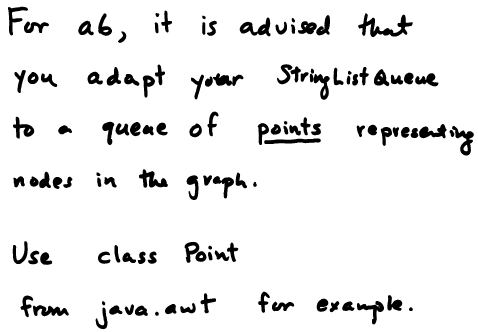 For a6, it is advised that
you adapt your StringListQueue
to a queue of points representing
nodes in the graph.
Use class Point
from java.awt for example.